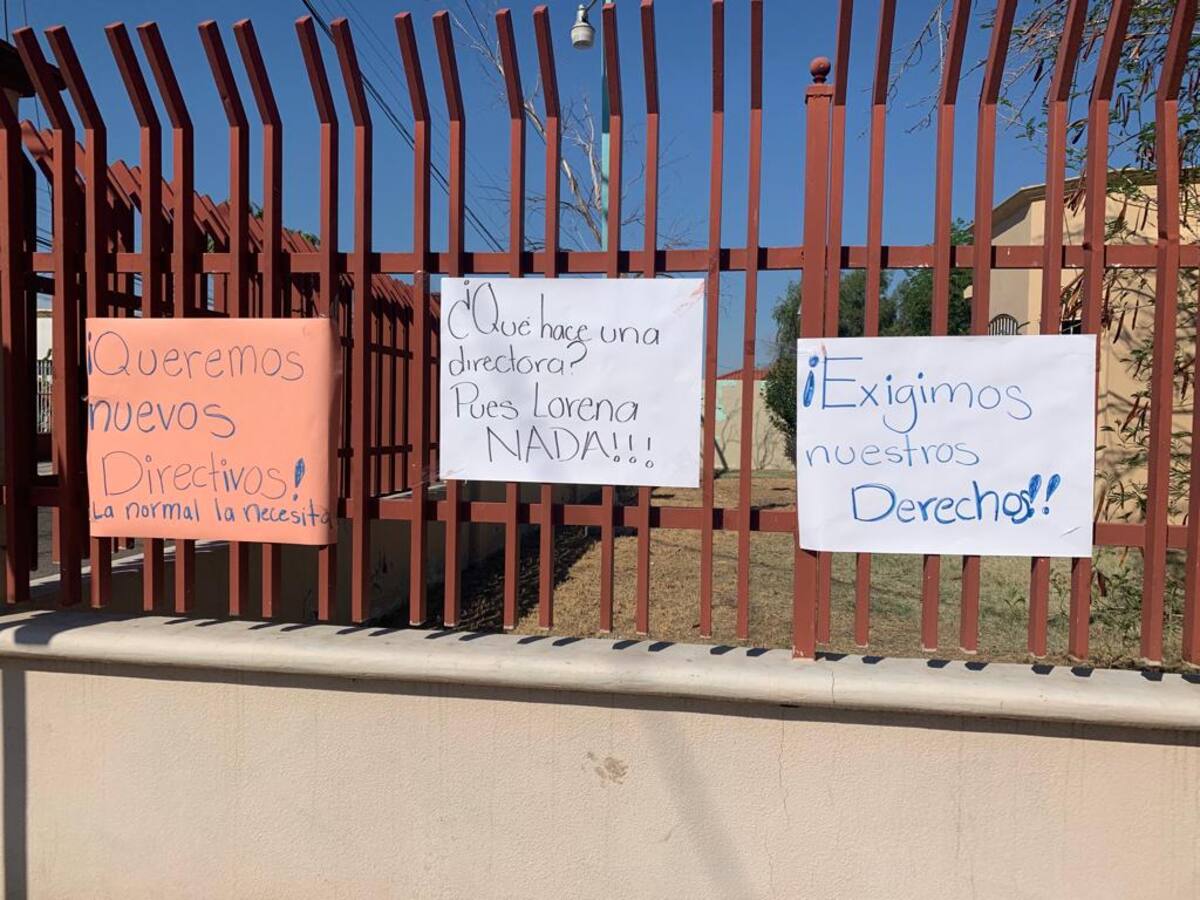 ¡Queremos
nuevos
Directivos!
La normal la necesita
¿Qué hace una
directora?
Pues Lorena
NADA!!!
¡Exigimos
nuestros
Derechos!!